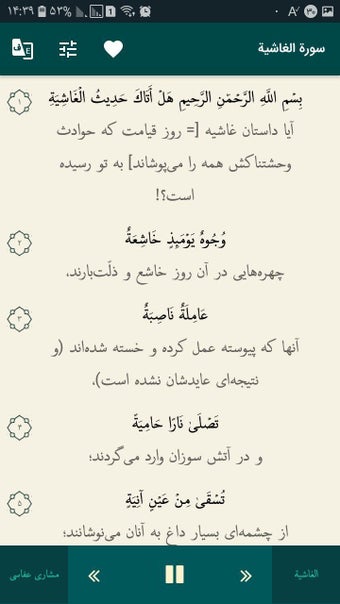 ۱۴:۳۹ ۵۳%
سورة الغاشية
بِسْمِ اللَّهِ الرَّحْمَٰنِ الرَّحِيمِ هَلْ أَتَاكَ حَدِيثُ الْغَاشِيَةِ
۱
آیا داستان غاشیه [= روز قیامت که حوادث
وحشتناکش همه را می‌پوشاند] به تو رسیده
است؟!
وُجُوهٌ يَوْمَئِذٍ خَاشِعَةٌ
۲
چهره‌هایی در آن روز خاشع و ذلّت‌بارند،
عَامِلَةٌ نَاصِبَةٌ
۳
آنها که پیوسته عمل کرده و خسته شده‌اند (و
نتیجه‌ای عایدشان نشده است).
تَصْلَىٰ نَارًا حَامِيَةً
۴
و در آتش سوزان وارد می‌گردند؛
تُسْقَىٰ مِنْ عَيْنٍ آنِيَةٍ
۵
از چشمه‌ای بسیار داغ به آنان می‌نوشانند؛
الغاشية
مشاری عفاسی